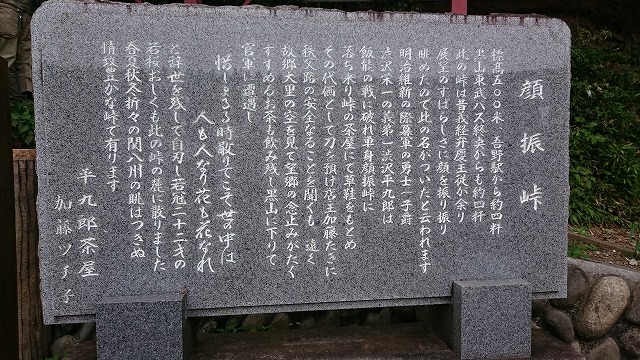 顔振峠
標高五〇〇米 吾野駅から約四粁
黒山東武バス終奌からも約四粁
此の峠は昔義経弁慶主従が余り
展望のすばらしさに顔を振り振り
眺めたので此の名がついたと云われます
明治維新の際幕軍の勇士一子爵
渋沢栄一の義弟一渋沢平九郎は
飯能の戦に破れ単身顔振峠に
落ち来り峠の茶屋にて草鞋をもとめ
その代価として刀を預け店主加藤たきに
秩父路の安全なることを聞くも 遠く
故郷大里の空を見て望郷の念止みがたく
すすめるお茶も飲み残し黒山に下りて
官軍に遭遇し
惜しまるる時散りてこそ世の中は
人も人なり花も花なれ
と辞世を残して自刃し若冠二十二才の
若桜おしくも此の峠の麓に散りました
春夏秋冬折々の関八州の眺はつきぬ
情緒豊かな峠で有ります
平九郎茶屋
加藤ツナ子